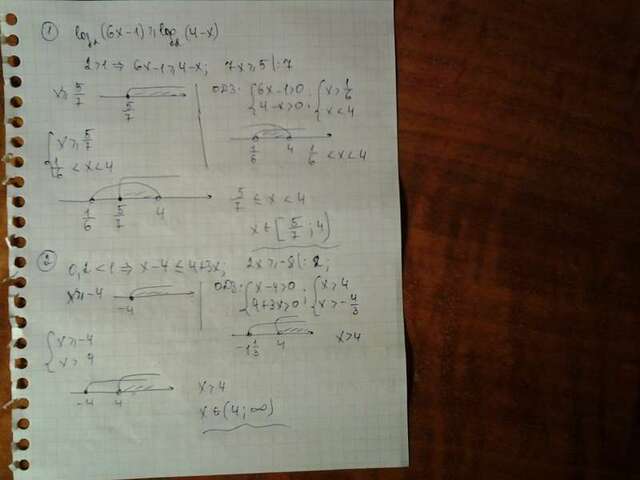 1 log₂(6x-1) ≥ log₂(4-x)
2>1 ⇒ 6x-1 ≥ 4-x; 7x ≥ 5 |:7
x ≥ 5/7
5/7
ОДЗ: { 6x-1>0; 4-x>0; { x>1/6 x<4
1/6 4 1/6 < x < 4
{ x ≥ 5/7 1/6 < x < 4
1/6 5/7 4
5/7 ≤ x < 4
x ∈ [5/7; 4)
2 0,2<1 ⇒ x-4 ≤ 4+3x; 2x ≥ -8 |:2;
x ≥ -4
-4
ОДЗ: { x-4>0; 4+3x>0; { x>4 x>-4/3
-1 1/3 4 x>4
{ x ≥ -4 x > 4
-4 4
x>4
x ∈ (4; ∞)